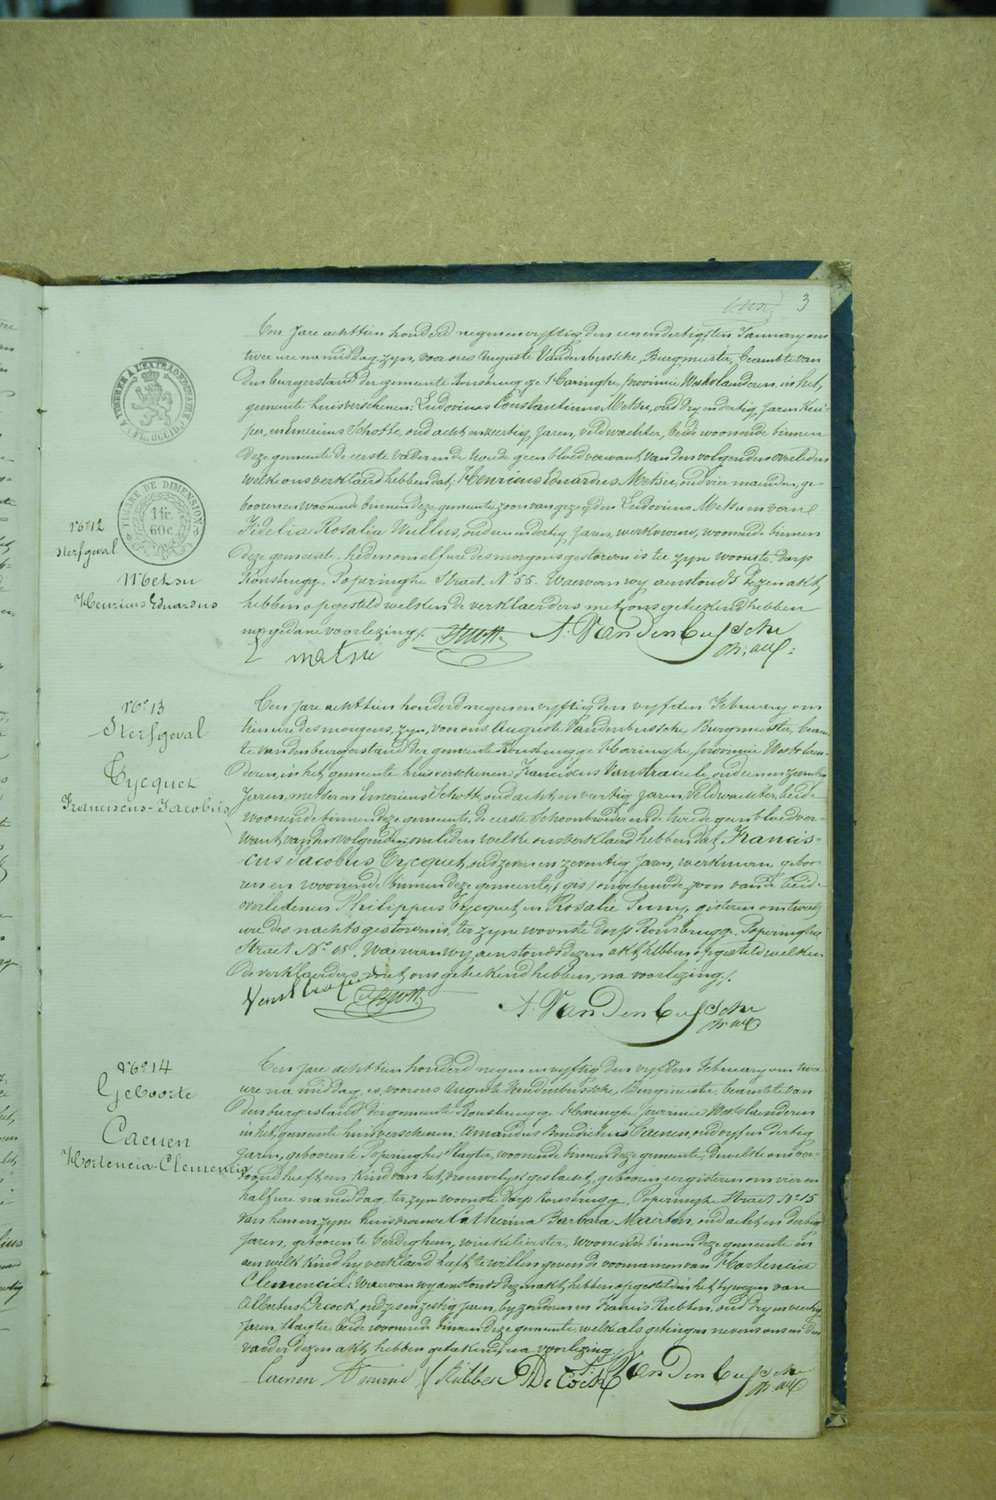 3
Een jare achttien honderd negen en vyftig den een en dertigsten January om
twee ure namiddag zyn, voor ons Auguste Vandenbussche, Burgmeester, beambte van
den burgerstand der gemeente Rousbrugge-Haringhe, provincie Westvlanderen, in het
gemeente huis verschenen: Ludovicus Constantinus Metsu, oud dry en dertig jaren, kui-
per, en Emerius Schotte, oud acht en veertig jaren, veldwachter, beide woonende binnen
deze gemeente de eerste vader en de tweede geen bloedverwant van den volgenden overleden
welke ons verklaerd hebben dat, Henricus Eduardus Metsu, oud vier maenden, ge-
booren en woonende binnen deze gemeente, zoon van gezegden Ludovicus Metsu en van
Fidelia Rosalia Nullus, oud een en dertig jaren, werkvrouw, woonende binnen
deze gemeente, heden om elf ure des morgens gestorven is ter zyne woonste dorp
Rousbrugge, Poperinghe Straet Nº 55. Waervan wy aenstonds dezen akt
hebben opgesteld welken de verklaerders met ons geteekend hebben
na gedane voorlezing.
TIMBRE A L'EXTRAORDINAIRE
FL. OCCID.
TIMBRE DE DIMENSION
1 fr.
60 c.
Nº 12
Sterfgeval
Metsu
Henricus Eduardus
L metsu Schotte A. Vandenbussche
Nº 13
Sterfgeval
Tycquet
Franciscus-Jacobus
Een jare achttien honderd negen en vyftig den vyfden February om
tien ure des morgens, zyn, voor ons Auguste Vandenbussche Burgmeester, beamb-
te van den burgerstand der gemeente Rousbrugge-Haringhe, provincie Westvlaen-
deren, in het gemeente huis verschenen: Franciscus Vanstraceele oud een en zeventig
jaren, metser en Emerius Schotte oud acht en veertig jaren, veldwachter, beide
woonende binnen deze gemeente, de eerste schoonbroeder en de tweede geen bloedver-
want van den volgenden overleden welke ons verklaerd hebben dat, Francis-
cus Jacobus Tycquet, oud zeven en zeventig jaren, werkman geboo-
ren en woonende binnen deze gemeente, ongehuwde, zoon van de beide
overledenen Philippus Tycquet en Rosalie
ure des nachts gestorven is, ter zyne woonste dorp Rousbrugge, Poperinghe
Straet Nº 65. Waervan wy aenstonds dezen akt hebben opgesteld welken
de verklaerders met ons geteekend hebben, na voorlezing.
Schotte A. Vandenbussche
Nº 14
Geboorte
Caenen
Hortencia-Clemencia
Een jare achttien honderd negen en vyftig den vyfden February om twee
ure namiddag is, voor ons Auguste Vandenbussche, Burgmeester, beambte van
den burgerstand der gemeente Rousbrugge-Haringhe provincie Westvlaenderen
in het gemeente huis verschenen: Amandus Benedictus Caenen, oud vyf en dertig
jaren, gebooren te Poperinghe, slagter, woonende binnen deze gemeente, dewelke ons ver-
toond heeft een kind van het vrouwelyk geslacht, gebooren eergisteren om vier en
half ure namiddag, ter zyne woonste dorp Rousbrugge, Poperinghe Straet Nº 15
van hem en zyne huisvrouw Catharina Barbara Maerten, oud acht en dertig
jaren, gebooren te Eerdeghem, winkelierster, woonende binnen deze gemeente en
aen welk kind hy verklaerd heeft te willen geven de voornamen van Hortencia
Clemencia. Waervan wy aenstonds dezen akt hebben opgesteld in het bywezen van
Albertus Decock, oud zes en zestig jaren, byzonderen en Francis Rubben, oud dry en veertig
jaren, slagter, beide woonende binnen deze gemeente, welke als getuigen nevens ons en den
vader dezen akt hebben geteekend, na voorlezing.
Caenen Amand F Rubben De Cock A. Vandenbussche